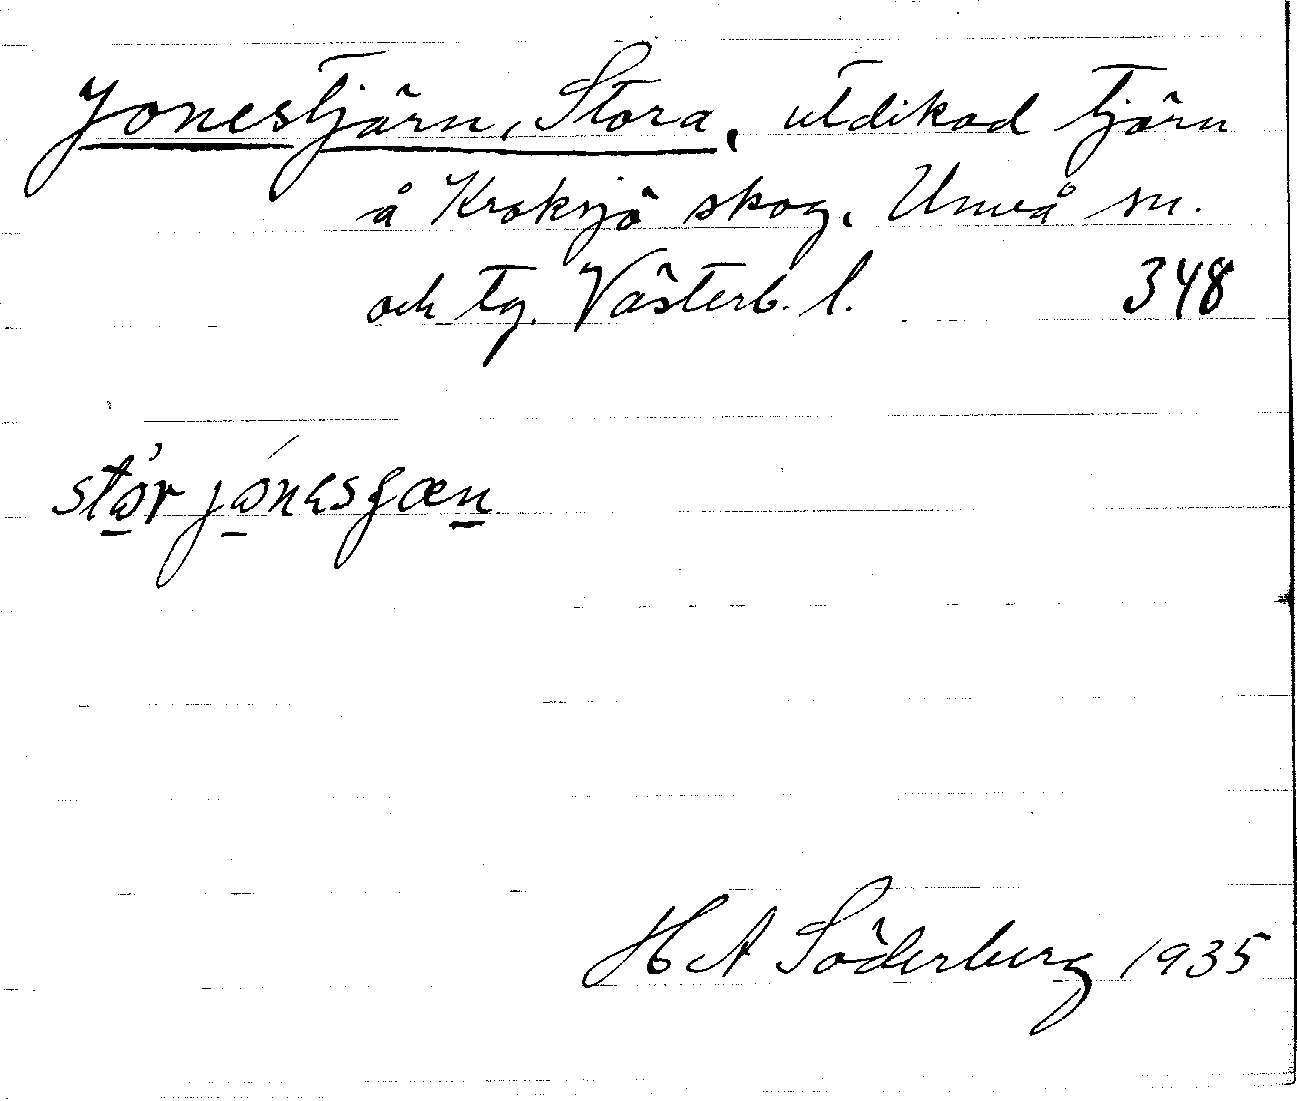 Jonestjärn, Stora, utdikad tjärn
å Kroksjö skog. Umeå sn.
och tg. Västerb. l. 348
H A Söderberg 1935